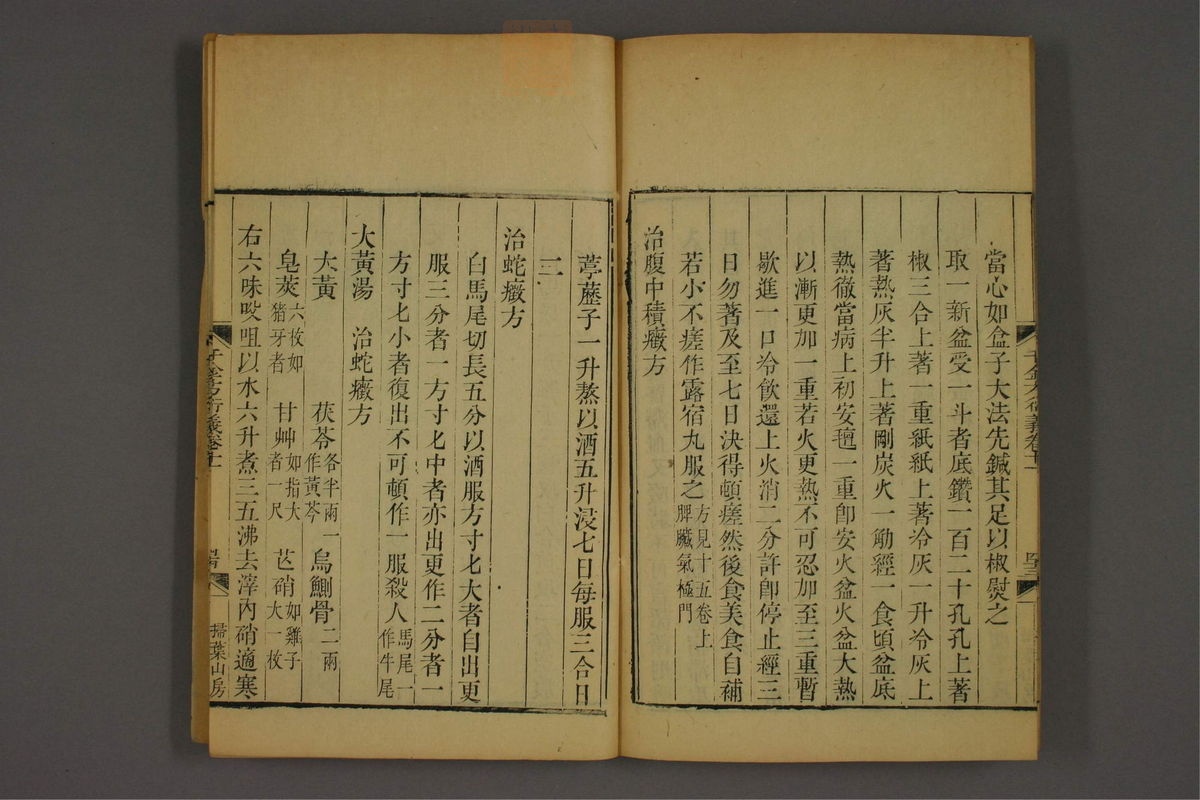 當心如盒子大法先鍼其足以椒熨之
取一新盆受一斗者底鑽一百二十孔孔上著
椒三合上著一重紙紙上著冷灰一升冷灰上
著熱灰半升上著剛炭火一觔經一食頃盆底
熱徹當病上初安氊一重卽安火盆火盆大熱
以漸更加一重若火更熱不可忍加至三重暫
歇進一口冷飲還上火消二分許卽停止經三
日勿著及至七日決得頓瘥然後食美食自補
若小不瘥作露宿丸服之方見十五卷上脾臟氣極門
治腹中積癥方
葶藶子一升熬以酒五升浸七日每服三合日
三
治蛇癥方
白馬尾切長五分以酒服方寸匕大者自出更
服三分者一方寸匕中者亦出更作二分者一
方寸匕小者復出不可頓作一服殺人馬尾一作牛尾
大黃湯　治蛇癥方
大黃　茯苓各半兩一作黃芩　烏鰂骨二兩
皂莢六枚如猪牙者　甘艸如指大者一尺　芒硝如雞子大一枚
右六味㕮咀以水六升煮三五沸去滓內硝適寒
千金方衍義卷十一
掃葉山房